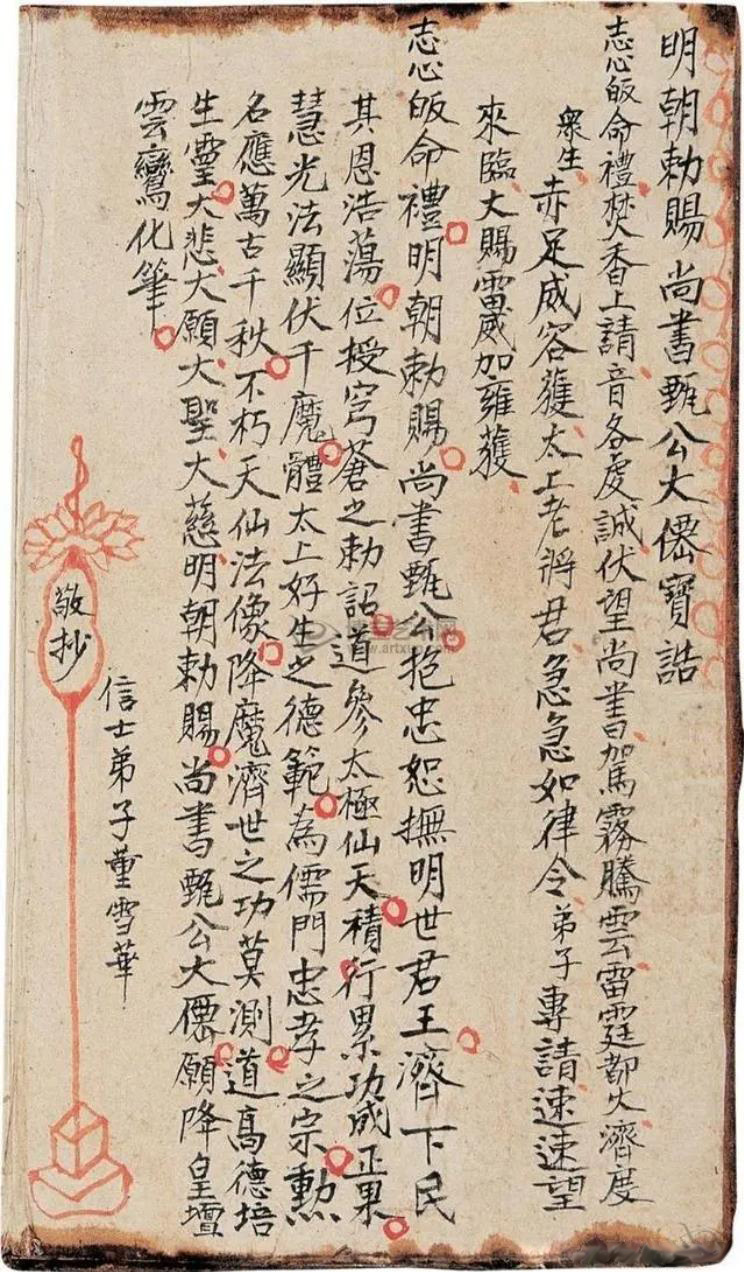 明朝勅賜尚書甄公大僊寶誥
志心皈命禮焚香上請音各虔誠伏望尚書駕霧騰雲雷霆都火濟度
衆生赤足威容護太上老將君急急如律令弟子專請速速望
來臨大賜雷威加雍護
志心皈命禮明朝勅賜尚書甄公抱忠恕撫明世君王濟下民
其恩浩蕩位授穹蒼之勅詔道參太極仙天積行累功成正果
慧光法顯伏千魔體太上好生之德範為儒門忠孝之宗勳
名應萬古千秋不朽天仙法像降魔濟世之功莫測道高德培
生靈大悲大願大聖大慈明朝勅賜尚書甄公大僊願降皇壇
雲鸞化筆
信士弟子董雪華
敬抄